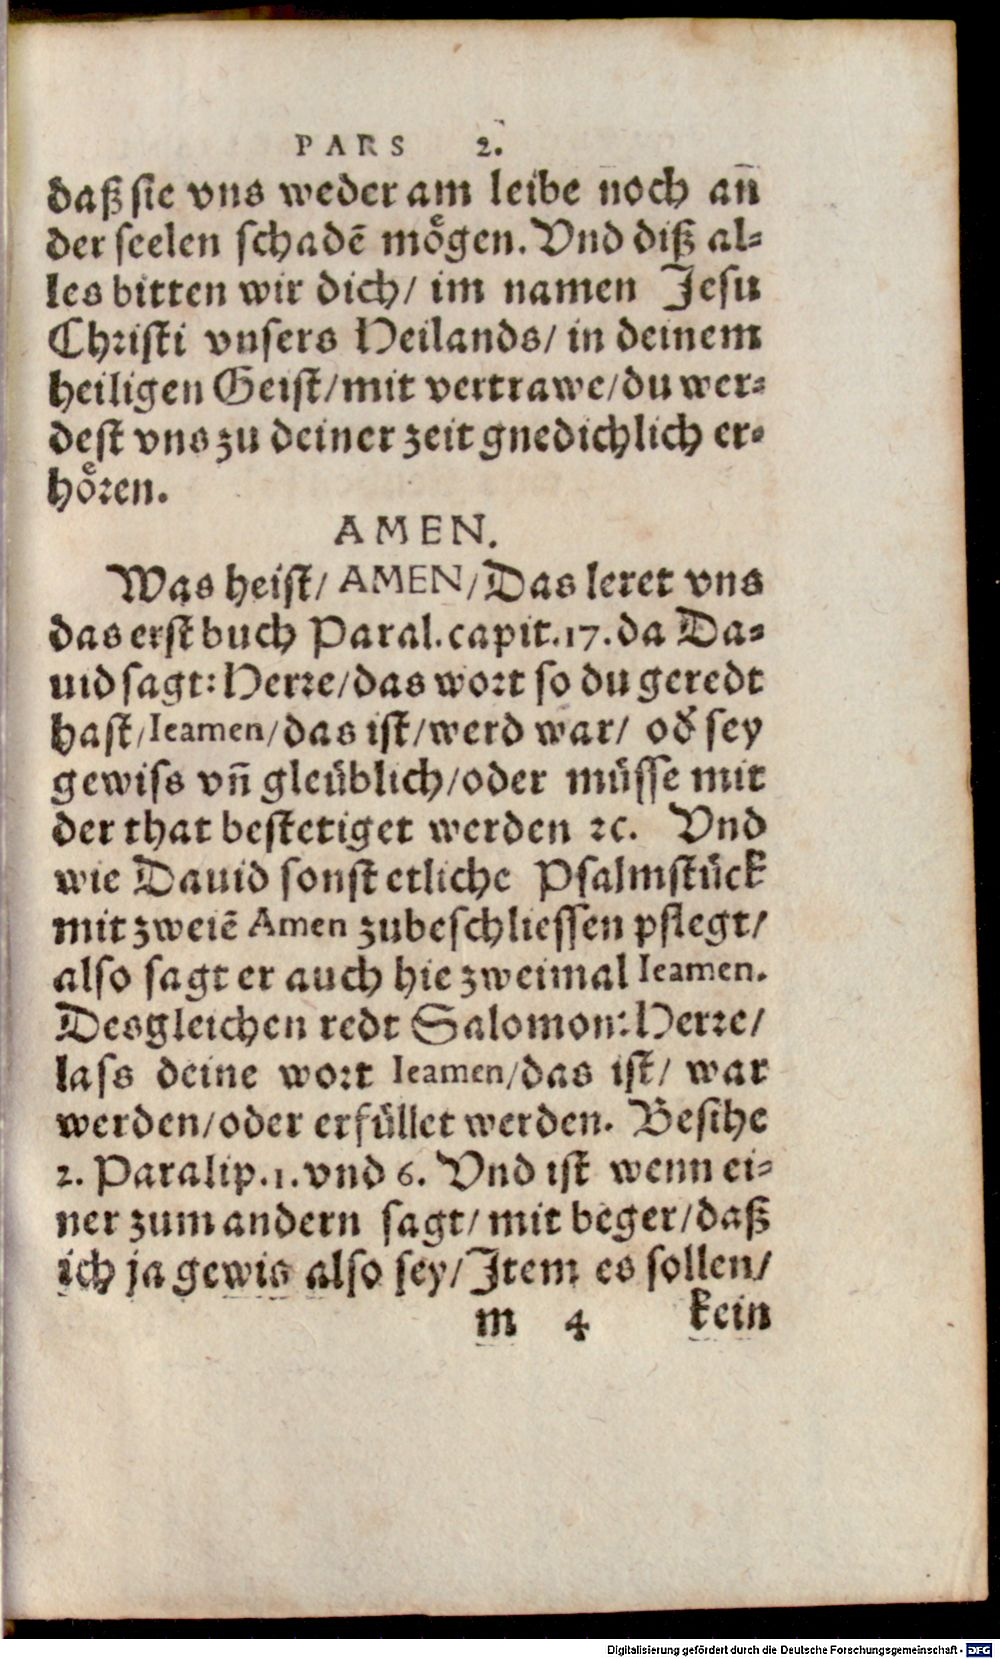 PARS 2.
daß sie vns weder am leibe noch an̄
der seelen schadē moͤgen. Vnd diß al⸗
les bitten wir dich/ im namen Jesu
Christi vnsers Heilands/ in deinem
heiligen Geist/mit vertrawe/du wer⸗
dest vns zu deiner zeit gnedichlich er⸗
hoͤren.
AMEN.
Was heist/ AMEN/Das leret vns
das erst buch Paral.capit.17.da Da⸗
uid sagt:Herre/das wort so du geredt
hast/Ieamen/das ist/werd war/ oď sey
gewiss vn̄ gleüblich/oder müsse mit
der that bestetiget werden ꝛc. Vnd
wie Dauid sonst etliche Psalmstück
mit zweiē Amen zubeschliessen pflegt/
also sagt er auch hie zweimal Ieamen.
Desgleichen redt Salomon:Herre/
lass deine wort Ieamen/das ist/ war
werden/oder erfüllet werden. Besihe
2. Paralip.1.vnd 6. Vnd ist wenn ei⸗
ner zum andern sagt/mit beger/daß
ich ja gewis also sey/Item es sollen/
m 4 kein
Digitalisierung gefördert durch die Deutsche Forschungsgemeinschaft - DFG